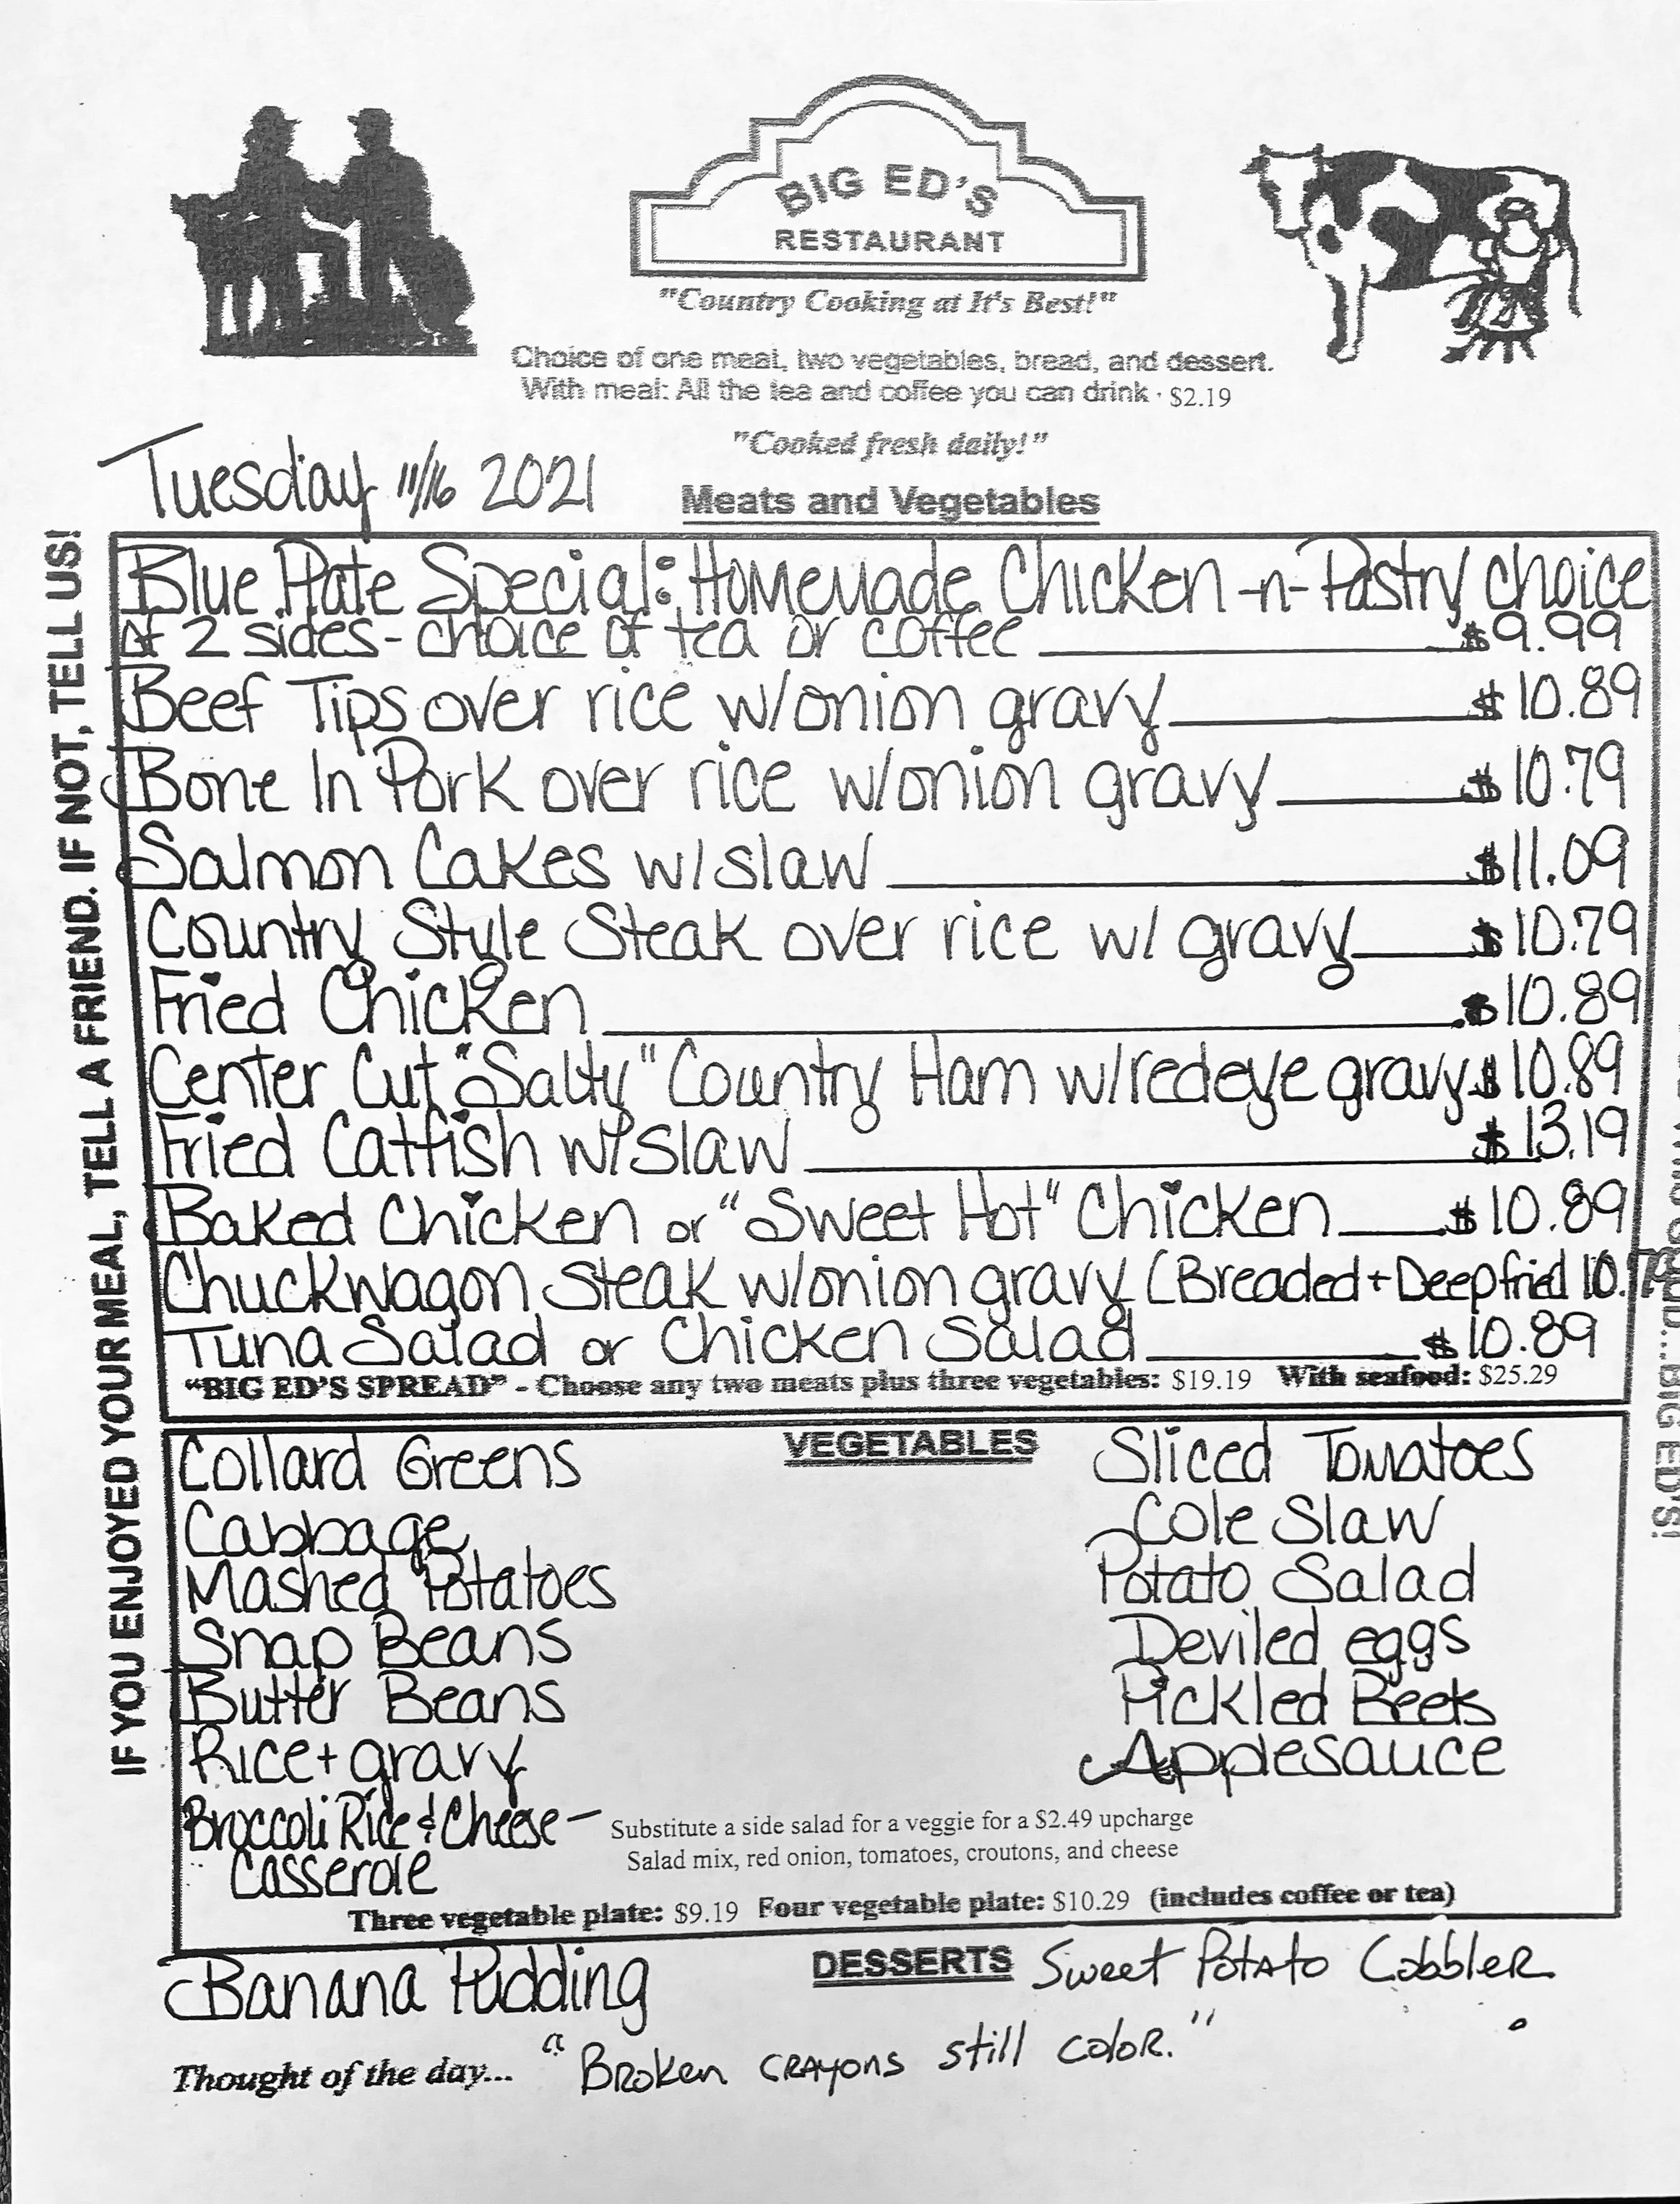 BIG ED'S
RESTAURANT
"Country Cooking at It's Best!"
Choice of one meat, two vegetables, bread, and dessert.
With meal: All the tea and coffee you can drink · $2.19
"Cooked fresh daily!"
Tuesday 11/16 2021
Meats and Vegetables
IF YOU ENJOYED YOUR MEAL, TELL A FRIEND. IF NOT, TELL US!
Blue Plate Special: Homemade Chicken -n- Pastry choice
of 2 sides - choice of tea or coffee $9.99
Beef Tips over rice w/onion gravy $10.89
Bone In Pork over rice w/onion gravy $10.79
Salmon Cakes w/slaw $11.09
Country Style Steak over rice w/ gravy $10.79
Fried Chicken $10.89
Center Cut "Salty" Country Ham w/redeye gravy $10.89
Fried Catfish w/slaw $13.19
Baked Chicken or "Sweet Hot" Chicken $10.89
Chuckwagon Steak w/onion gravy (Breaded + Deepfried 10.79
Tuna Salad or Chicken Salad $10.89
"BIG ED'S SPREAD" - Choose any two meats plus three vegetables: $19.19 With seafood: $25.29
BIG ED'S!
VEGETABLES
Collard Greens
Cabbage
Mashed Potatoes
Snap Beans
Butter Beans
Rice + gravy
Broccoli Rice & Cheese -
Casserole
Sliced Tomatoes
Cole Slaw
Potato Salad
Deviled eggs
Pickled Beets
Applesauce
Substitute a side salad for a veggie for a $2.49 upcharge
Salad mix, red onion, tomatoes, croutons, and cheese
Three vegetable plate: $9.19 Four vegetable plate: $10.29 (includes coffee or tea)
DESSERTS
Banana Pudding
Sweet Potato Cobbler
Thought of the day... "Broken crayons still color."